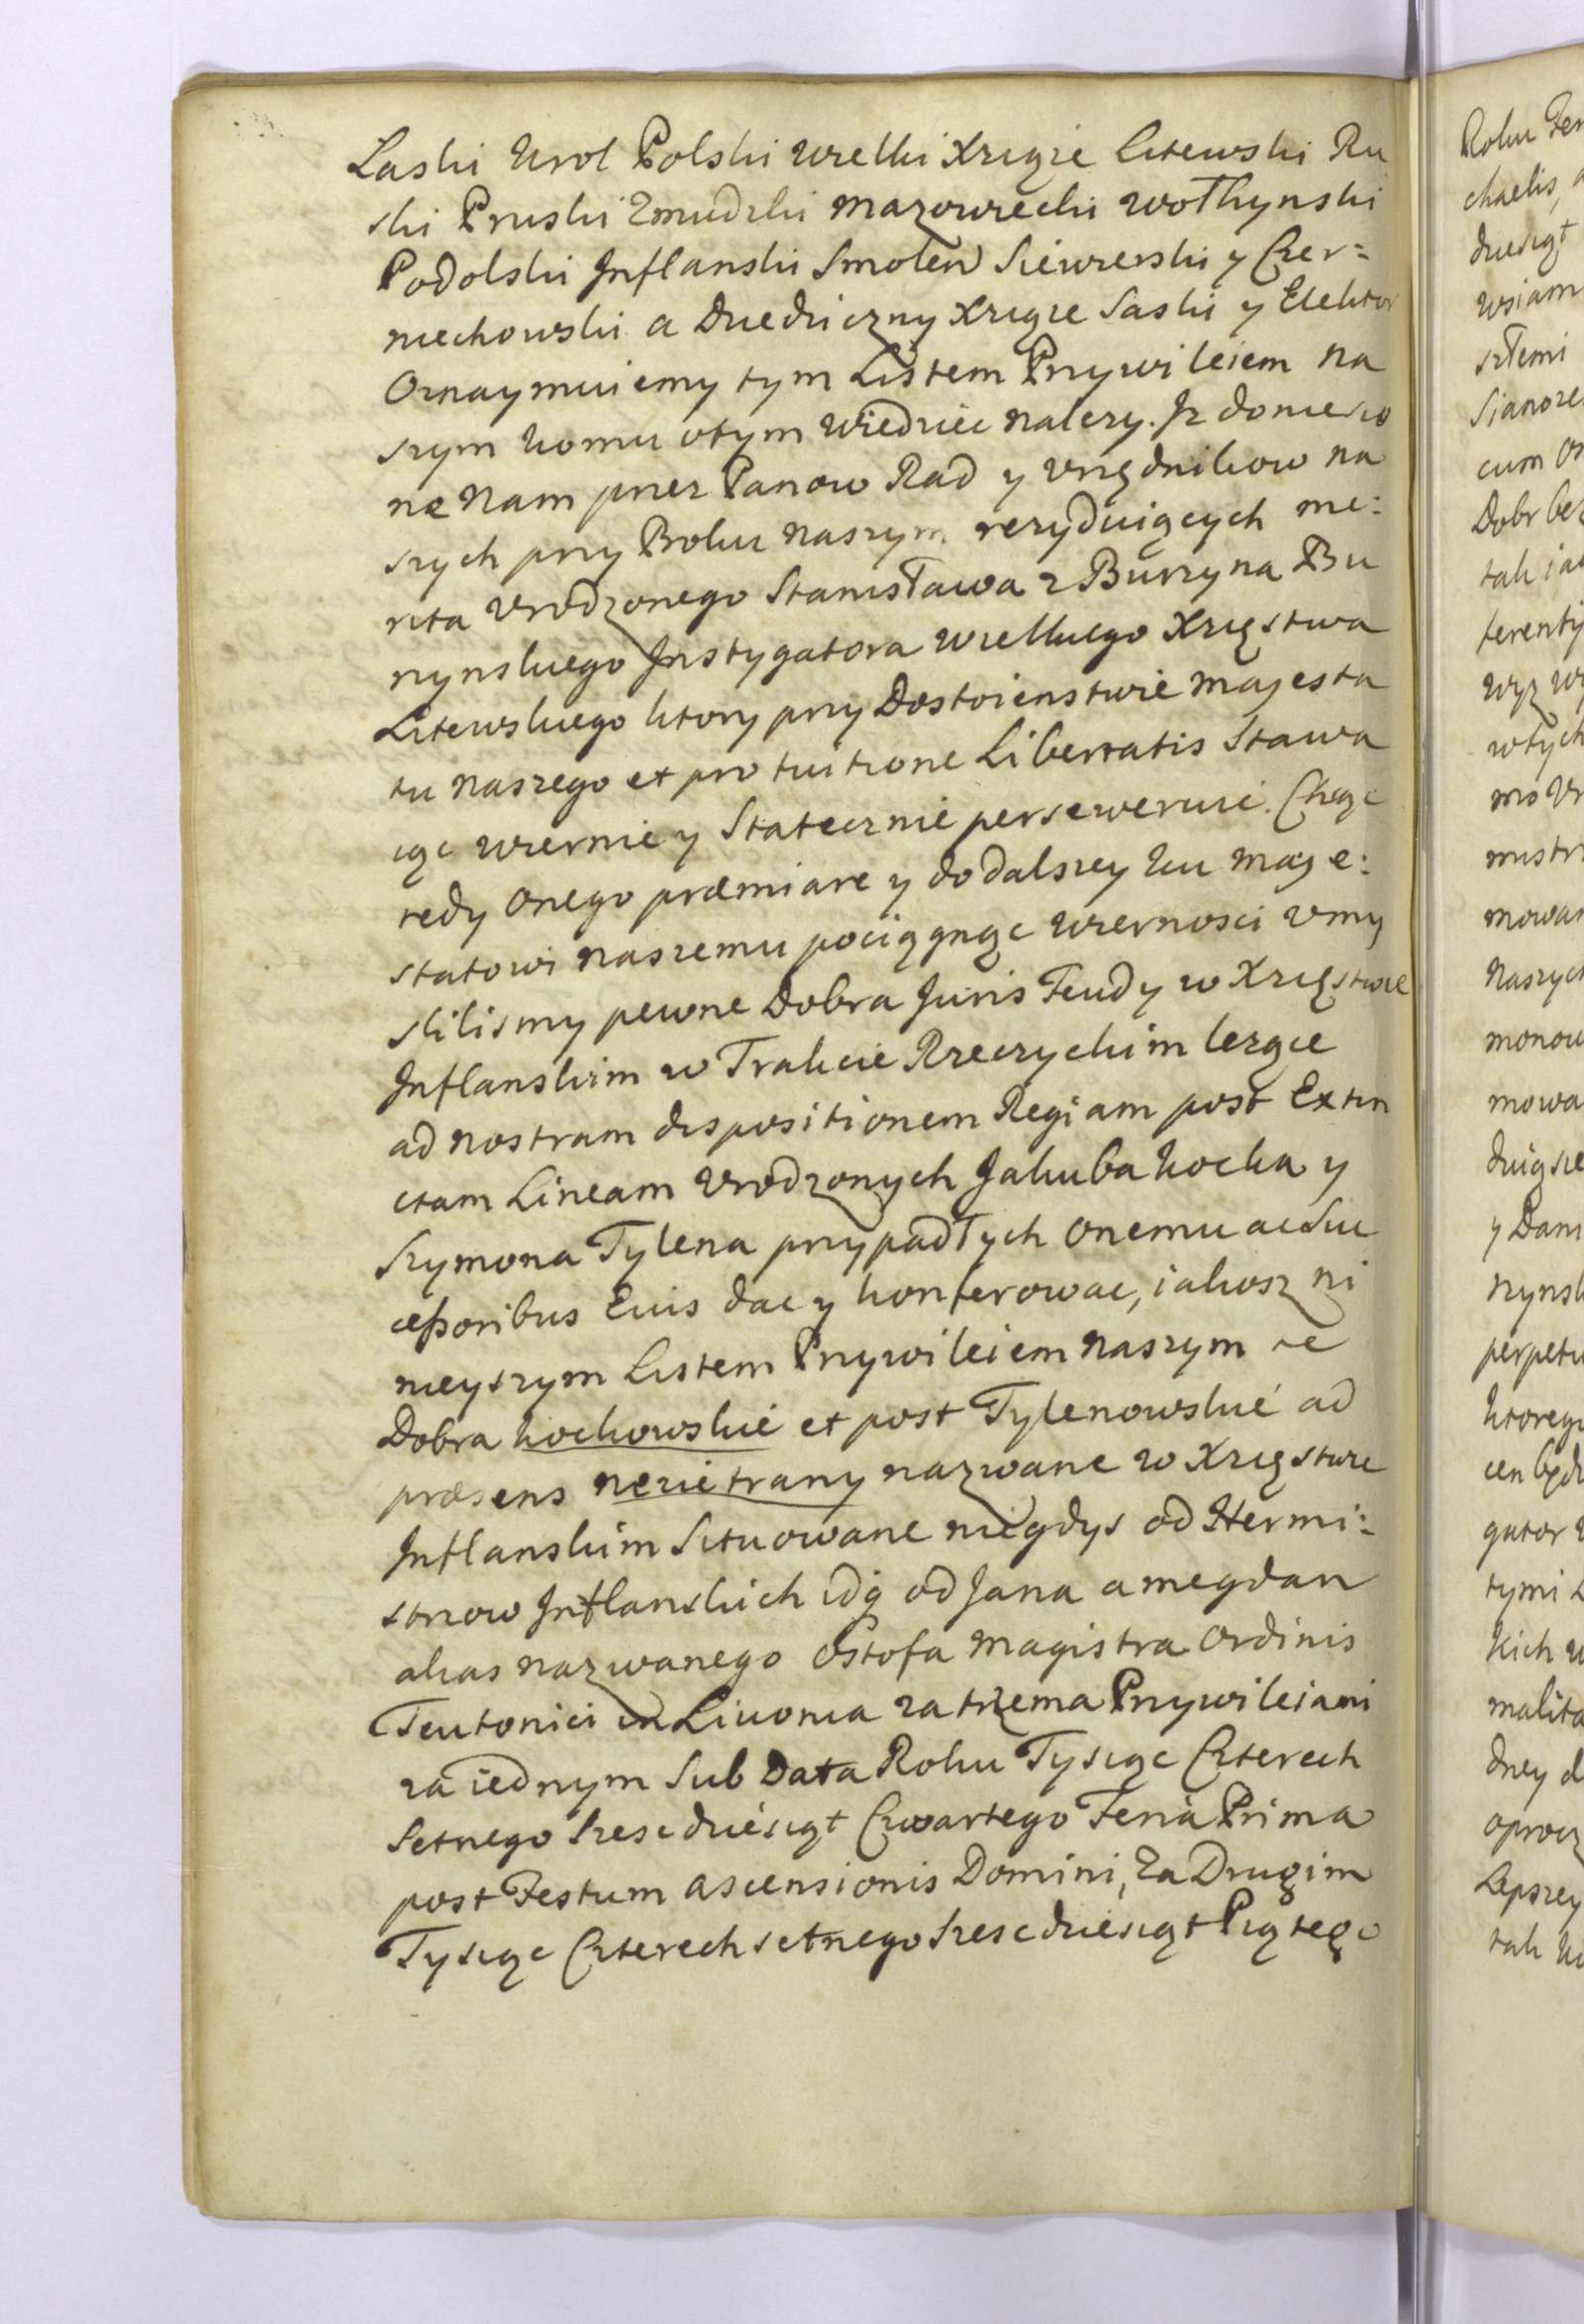 Łaski Krol Polski wielki Xiąże Litewski Ru
ski Pruski Zmudzki mazowiecki wołhynski
Podolski Jnflanski Smoleń Siewierski y Czer=
niechowski a Dziedziczny Xiąże Saski y Elektor
Oznaymuiemy tym Listem Przywileiem na
szym komu otym wiedziec nalezy. Jz doniesio
ne nam przez Panow Rad y vrzędnikow na
szych przy Boku naszym rezyduiących me:
rita vrodzonego Stanisława z Burzyna Bu
rzynskiego Jnstygatora wielkiego Xięstwa
Litewskiego ktory przy Dostoienstwie majesta
tu naszego et pro tuitione Libertatis Stawa
iąc wiernie y Statecznie perseweruie. Chcąc
tedy onego præmiare y do dalszey ku maje:
statowi naszemu pociągnąc wiernosci vmy
slilismy pewne Dobra Juris Feudy w Xięstwie
Jnflanskim w Trakcie Rzeczyckim lezące
ad nostram dispositionem Regiam post Extin
ctam Lineam vrodzonych Jakuba kocka y
Szymona Tylena przypadłych onemu ac Suc
cessoribus Eius dac y konferowac, iakosz ni
nieyszym Listem Przywileiem naszym te
Dobra kockowskie et post Tylenowskie ad
præsens nerzietrany nazwane w Xięstwie
Jnflanskim Situowane niegdys od Hermi:
strzow Jnflanskich idq̃ od Jana amegdan
alias nazwanego Ostofa magistra Ordinis
Teutonici in Liuonia za trzema Przywileiami
za iednym Sub Data Roku Tysiąc Czterech
Setnego Szescdziesiąt Czwartego Feria Prima
post Festum ascensionis Domini, Za Drugim
Tysiąc Czterechsetnego Szescdziesiąt Piątego